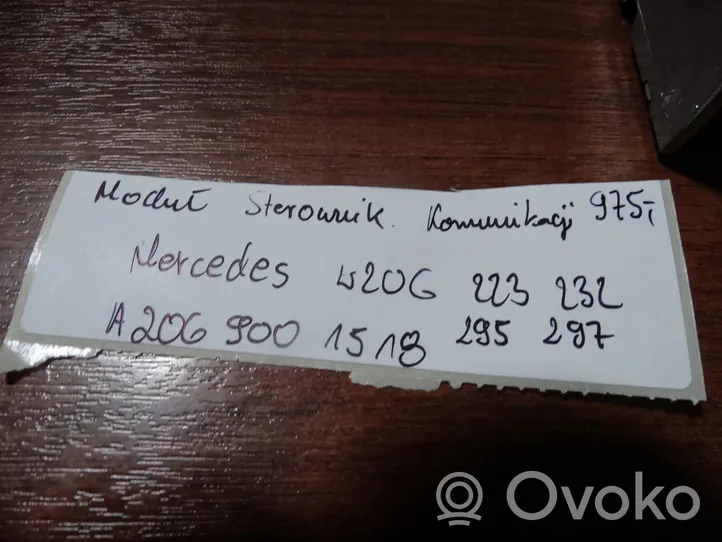 Moduł Sterownik. Komunikacji 975,-
Mercedes W206 223 232
A 206 900 15 18 295 297
Ovoko